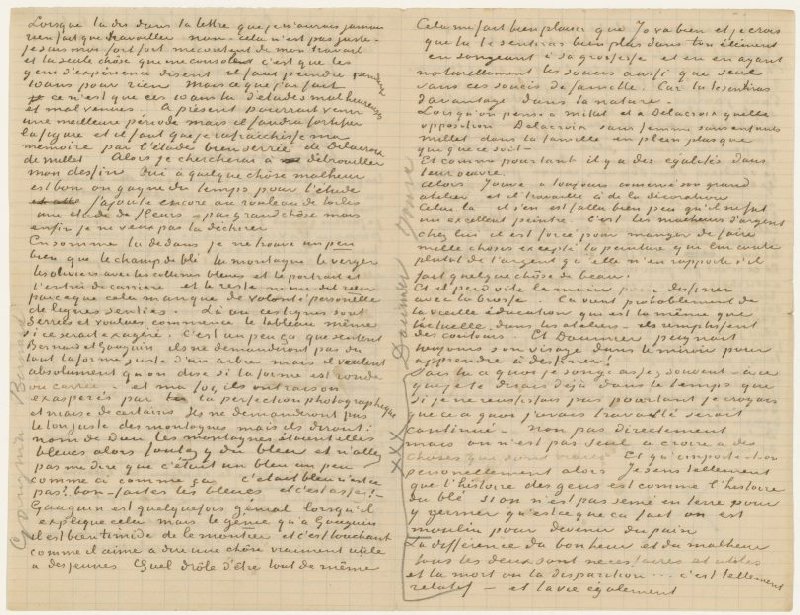 Lorsque tu dis dans ta lettre que je n'aurais jamais
rien fait que travailler non – cela n'est pas juste –
je suis moi fort fort mécontent de mon travail
et la seule chôse que me console c'est que les
gens d'expérience disent il faut peindre pendant
10 ans pour rien. Mais ce que j'ai fait
ce n'est que ces 10 ans là d'études malheureuses
et mal venues. A present pourrait venir
une meilleure période mais il faudra fortifier
la figure et il faut que je rafraichisse ma
mémoire par l'étude bien serrée de Delacroix
de Millet Alors je chercherai à debrouiller
mon dessin. Oui à quelque chôse malheur
est bon on gagne du temps pour l'étude
J'ajoute encore au rouleau de toiles
une etude de fleurs – pas grand chôse mais
enfin je ne veux pas la déchirer
En somme là dedans je ne trouve un peu
bien que le champ de blé la montagne le verger
les oliviers avec les collines bleues et le portrait et
l'entrée de carriere et le reste dit rien
parceque cela manque de volonté personelle
de lignes senties. Là où ces lignes sont
serrees et voulues commence le tableau même
si ce serait exagéré. C'est un peu ça que sentent
Bernard et Gauguin ils ne demanderont pas du
tout la forme juste d'un arbre mais ils veulent
absolument qu'on dise si la forme est ronde
ou carree – et ma foi, ils ont raison
exasperés par la perfection photographique
et niaise de certains Ils ne demanderont pas
le ton juste des montagnes mais ils diront:
nom de Dieu les montagnes étaient elles
bleues alors foutez y du bleu et n'allez
pas me dire que c'était un bleu un peu
comme ci comme ça c'était bleu n'est ce
pas? bon – faites les bleues et c'est assez!
Gauguin est quelquefois génial lorsqu'il
explique cela mais le génie qu'a Gauguin
il est bien timide de le montrer et c'est touchant
comme il aime à dire une chôse vraiment utile
à des jeunes. Quel drôle d'être tout de même
Cela me fait bien plaisir que Jo va bien et je crois
que tu te sentiras bien plus dans ton élément
en songeant à sa grossesse et en en ayant
naturellement les soucis aussi que seul
sans ces soucis de famille. Car tu te sentiras
davantage dans la nature.
Lorsqu'on pense à Millet et à Delacroix quelle
opposition Delacroix sans femme sans enfants
Millet dans la famille en plein plus que
que que ce soit –
Et comme pourtant il y a des égalités dans
leur oeuvre.
Alors Jouve a toujours conservé son grand
atelier et il travaille à de la décoration
Celui là il s'en est fallu bien peu qu'il ne fut
un excellent peintre. C'est les malheurs d'argent
chez lui il est forcé pour manger de faire
mille choses excepté la peinture qui lui coute
plutot de l'argent qu'elle n'en rapporte s'il
fait quelque chôse de beau.
Et il perd vite la main dessiner
avec la brosse. Ca vient probablement de
la vieille éducation qui est la même que
l'actuelle dans les ateliers – ils remplissent
de contours. Et Daumier peignait
toujours son visage dans le miroir pour
apprendre à dessiner!
Sais tu à quoi je songe assez souvent – à ce
que je te disais déjà dans le temps que
si je ne reussissais pas pourtant je croyais
que ce à quoi j'avais travaillé serait
continué. Non pas directement
mais on n'est pas seul à croire à des
choses que sont vraies Et qu'importe-t-on
personellement alors Je sens tellement
que l'histoire des gens est comme l'histoire
du blé si on n'est pas semé en terre pour
y germer qu'est ce que ça fait on est
moulu pour devenir du pain
La différence du bonheur et du malheur
tous les deux sont nécessaires et utiles
et la mort ou la disparition ... c'est tellement
relatif – et la vie également
Gauguin Bernard
Daumier Jouve
XXX